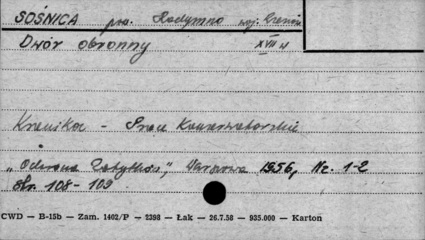 SOŚNICA pow. Radymno woj.
Dwór obronny XVII w
Kronika - Prace Konserwatorskie
„Ochrona Zabytków", Warszawa 1956, Nr. 1-2
str. 108-109
CWD — B-15b — Zam. 1402/P — 2398 — Łak — 26.7.58 — 935.000 — Karton